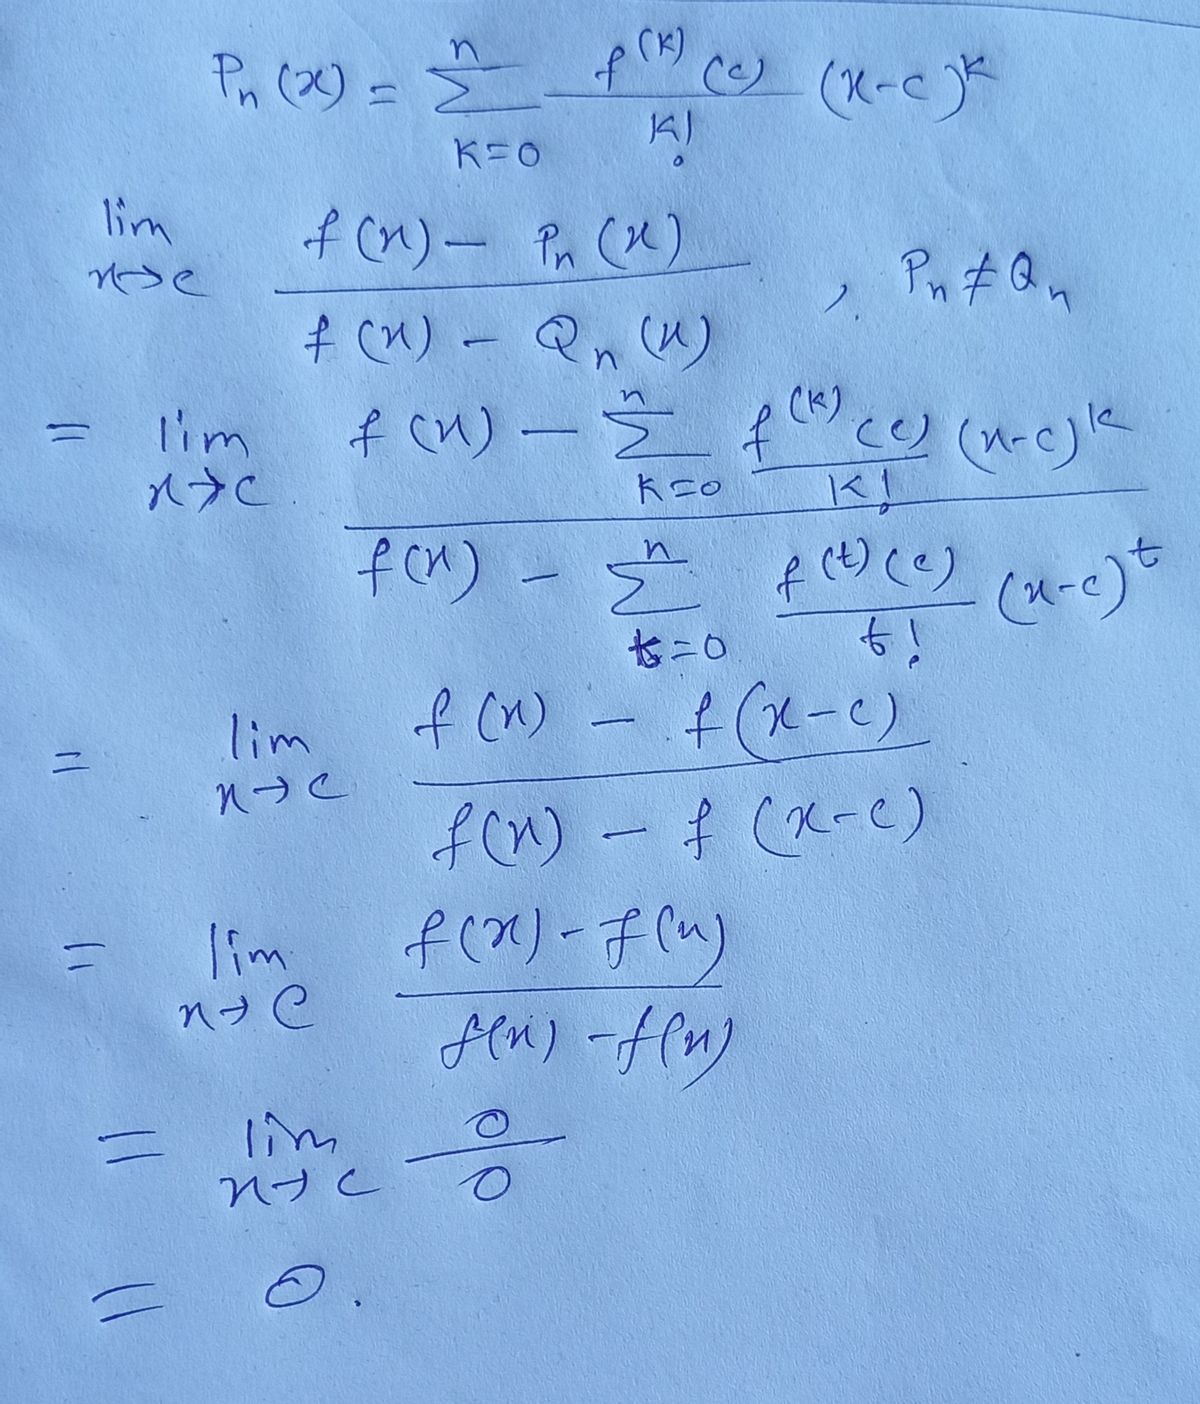 Pn(x) = Σ_{k=0}^{n} f^{(k)}(c)/k! (x-c)^k
lim_{x→c} (f(x) - Pn(x))/(f(x) - Qn(x)), Pn ≠ Qn
= lim_{x→c} (f(x) - Σ_{k=0}^{n} f^{(k)}(c)/k! (x-c)^k)/(f(x) - Σ_{t=0}^{n} f^{(t)}(c)/t! (x-c)^t)
= lim_{x→c} (f(x) - f(x-c))/(f(x) - f(x-c))
= lim_{x→c} (f(x) - f(x))/(f(x) - f(x))
= lim_{x→c} 0/0
= 0.